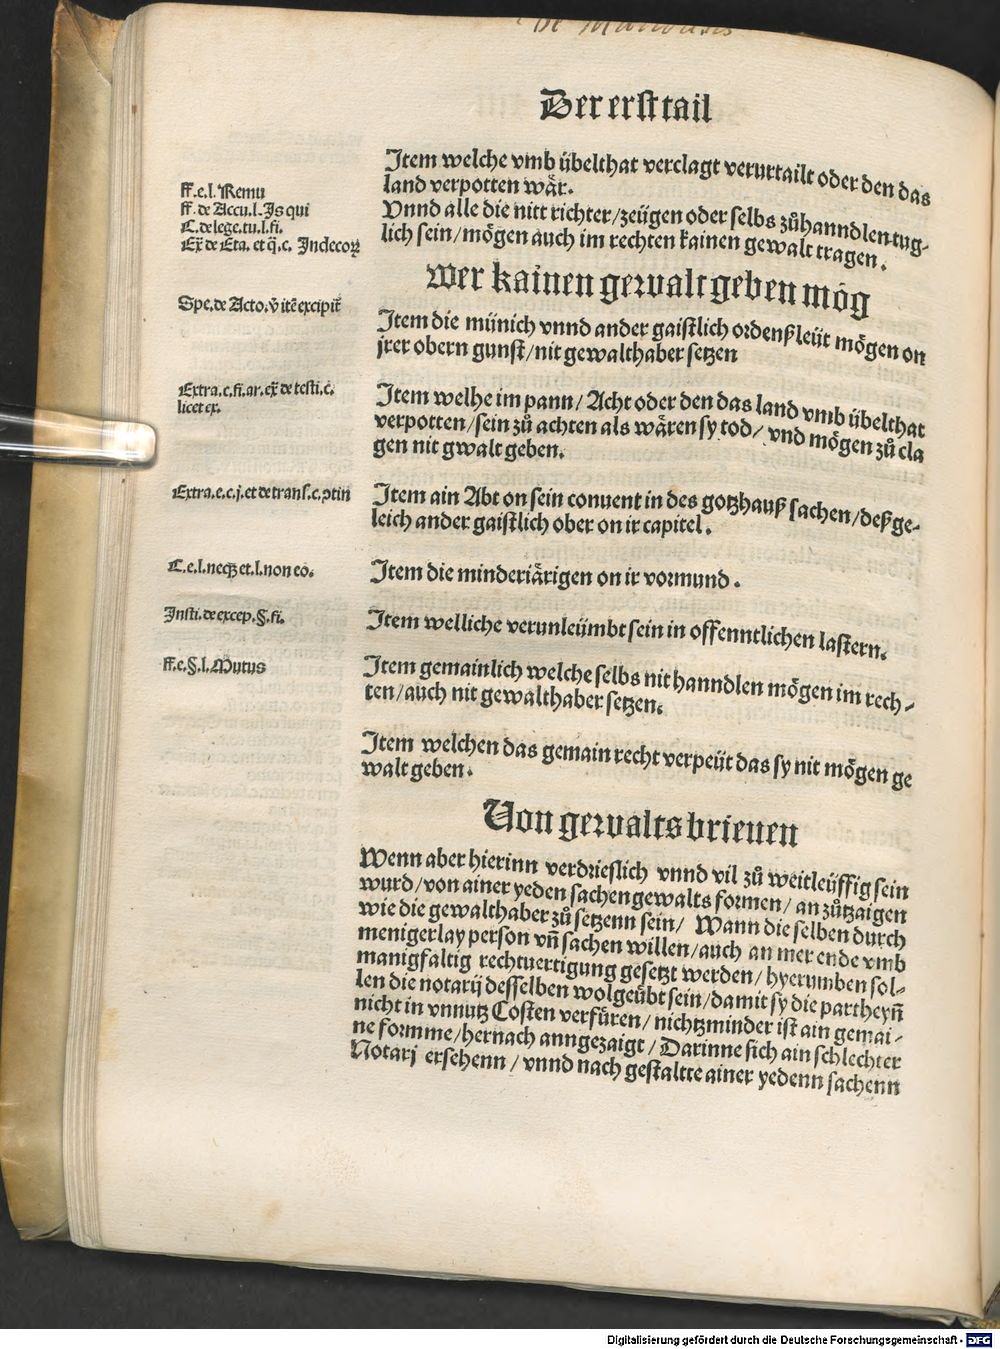 Der erst tail
Item welche vmb übelthat verclagt verurtailt oder den das
land verpotten wär.
Vnnd alle die nitt richter/zeügen oder selbs zůhanndlen tug-
lich sein/mögen auch im rechten kainen gewalt tragen.
ff.e.l. Remu
ff. de Accu.l. Is qui
C. de lege.tu.l.fi.
Ex̃ de Eta. et q̃.c. Indecoꝝ
Wer kainen gewalt geben mög
Item die münich vnnd ander gaistlich ordenßleüt mögen on
jrer obern gunst/nit gewalthaber setzen
Spe.de Acto.ṽ itẽ excipit̃
Item welhe im pann/ Acht oder den das land vmb übelthat
verpotten/sein zů achten als wären sy tod/ vnd mögen zů cla
gen nit gwalt geben.
Extra.e.fi.ar.ex̃ de testi.c̃.
licet ex.
Item ain Abt on sein conuent in des gotzhauß sachen/deßge-
leich ander gaistlich ober on ir capitel.
Extra.e.c.j.et de trans.c.ptin
Item die minderiärigen on ir vormund.
C.e.l.neqꝫ et.l.non eo.
Item welliche verunleümbt sein in offenntlichen lastern.
Insti.de excep.§.fi.
Item gemainlich welche selbs nit hanndlen mögen im rech-
ten/auch nit gewalthaber setzen.
ff.e.§.l.Mutus
Item welchen das gemain recht verpeüt das sy nit mögen ge
walt geben.
Von gewaltsbrieuen
Wenn aber hierinn verdrieslich vnnd vil zů weitleüffig sein
wurd/von ainer yeden sachen gewalts formen/ an zůtzaigen
wie die gewalthaber zů setzenn sein/ Wann die selben durch
menigerlay person vñ sachen willen/auch an mer ende vmb
manigfaltig rechtuertigung gesetzt werden/hyerumben sol-
len die notarij desselben wolgeübt sein/damit sy die partheyñ
nicht in vnnutz Costen verfüren/ nichtzminder ist ain gemai-
ne formme/hernach anngezaigt/Darinne sich ain schlechter
Notarj ersehenn/vnnd nach gestaltte ainer yedenn sachenn
Digitalisierung gefördert durch die Deutsche Forschungsgemeinschaft - DFG